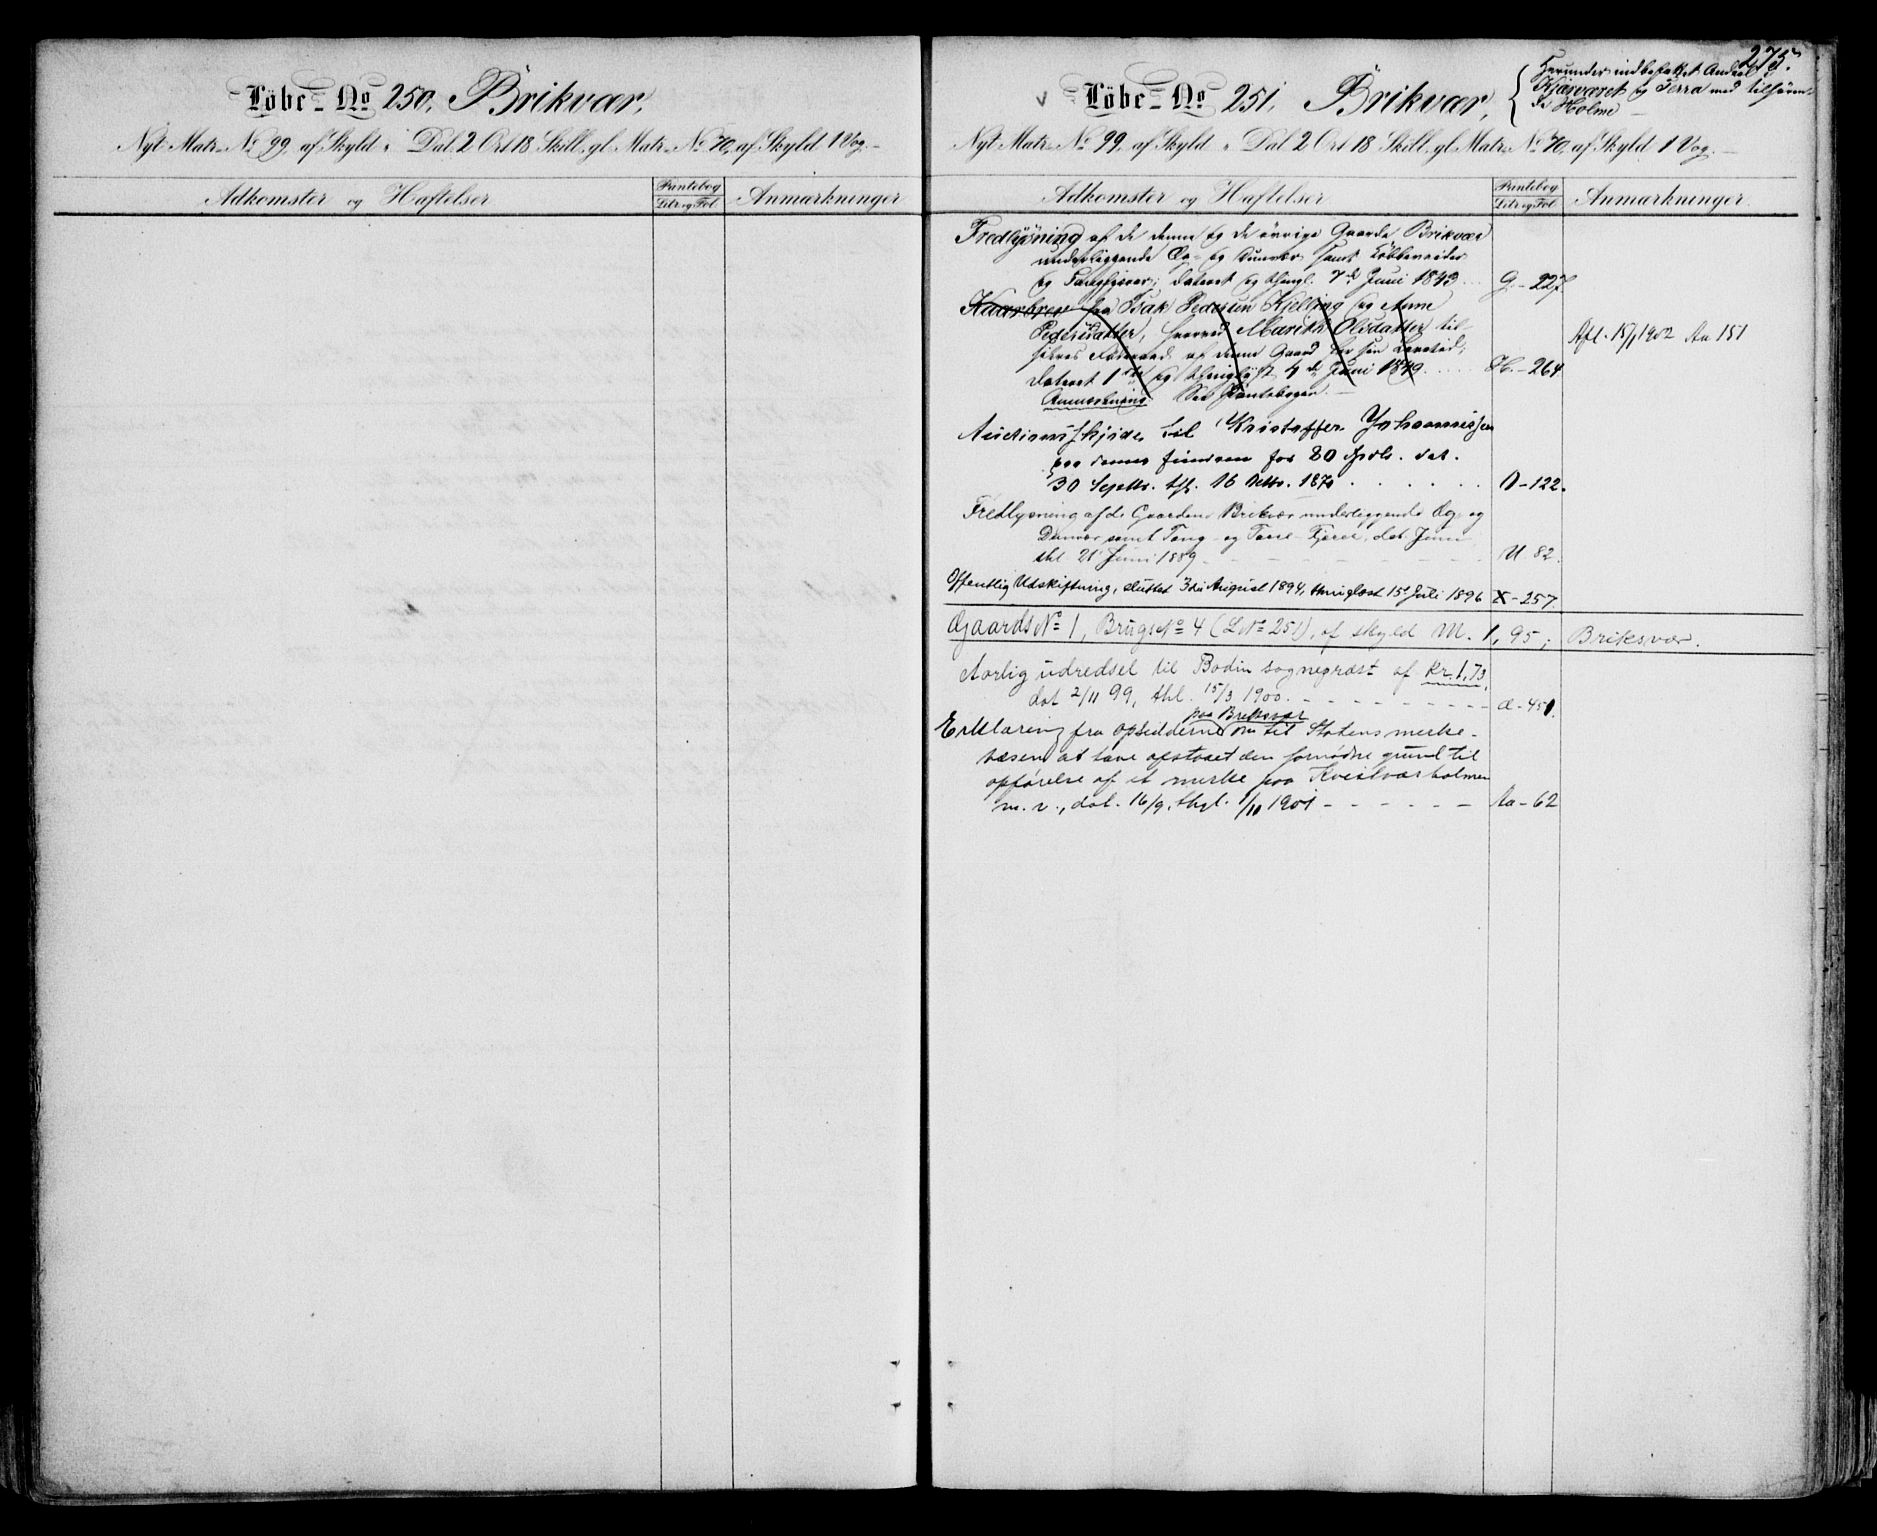 Löbe-No 250, Brikvær,
Nyt Matr-No 99, af Skyld " Dal. 2 Ort 18 Skill, gl. Matr-No 70, af Skyld 1 Vog.-
Adkomster og Hæftelser
Pantebog
Litr. og Fol.
Anmærkninger
275.
Löbe-No 251, Brikvær,
Herunder indbefattet Andeel i
Kjæsværet og Terra med tilhören-
de Holme
Nyt Matr-No 99, af Skyld " Dal 2 Ort 18 Skill, gl. Matr-No 70, af Skyld 1 Vog.-
Adkomster og Hæftelser
Pantebog
Litr. og Fol.
Anmærkninger
Fredlysning af de denne og de övrige Gaarde Brikvær
underliggende Eg- og Dunvær samt Kobbeveider
og ; dateret og thingl. 7de Juni 1843 G.-227.
Kaarbrev fra Isak Pedersen Kjelling og Anne
Pedersdatter, hvorved Marith Olsdatter til-
sikres af denne Gaard for sin Levetid;
dateret 1ste og thinglyst 4de Juni 1849. H.-264
Afl. 15/1 1902 Aa 151
Anmærkning: See Pantebogen.
Auctionsskjöde til Kristoffer Johannissen
paa denne for 80 Spdlr. dat.
30 Septbr. thl. 16 1870 O-122.
Fredlysning af de Gaarden Brikvær underliggende Æg- og
Dunvær samt Tang- og Tare-Fjære, dat Juni
thl 21 Juni 1889 U 82.
Offentlig Udskiftning, sluttet 3die August 1894, thinglæst 15de Juli 1896 X-257.
Gaards No 1, Brugs No 4 (L.No 251), af skyld M. 1,95; Briksvær.
Aarlig udredsel til Bodin sogneprest af kr. 1,73,
dat 2/11 99, thl. 15/3 1900. Æ-451.
paa Briksvær
Erklæring fra opsidderne om til Statens merke-
væsen at have afstaaet den fornødne grund til
opførelse af et merke paa Kvitvarholmen
m. v., dat. 16/9, thgl. 1/11 1901 Aa-62